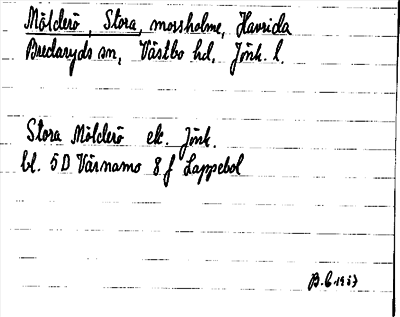 Mölderö, Stora, mossholme, Havrida
Bredaryds sn, Västbo hd, Jönk. l.
Stora Mölderö ek. Jönk.
bl. 5D Värnamo 8 f Lappebol